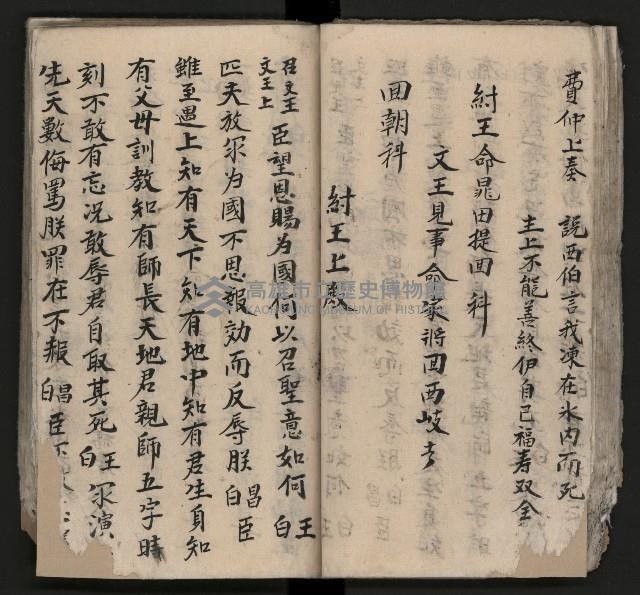 費仲上奏 說西伯言我凍在氷内而死
主上不能善終伊自已福寿双全
紂王命晁田提囬科
文王見事命衆將囬西岐去
囬朝科
紂王上殿
召文王
文王上
臣望恩賜為國何以召聖意如何 白王
匹夫放尔為國不思報効而反辱朕 白昌臣
雖至遇上知有天下知有地中知有君生身知
有父母訓教知有師長天地君親師五字時
刻不敢有忘况敢辱君自取其死 白王 尔演
先天數侮罵朕罪在不赦 白昌臣
高雄市立歷史博物館
KAOHSIUNG MUSEUM OF HISTORY